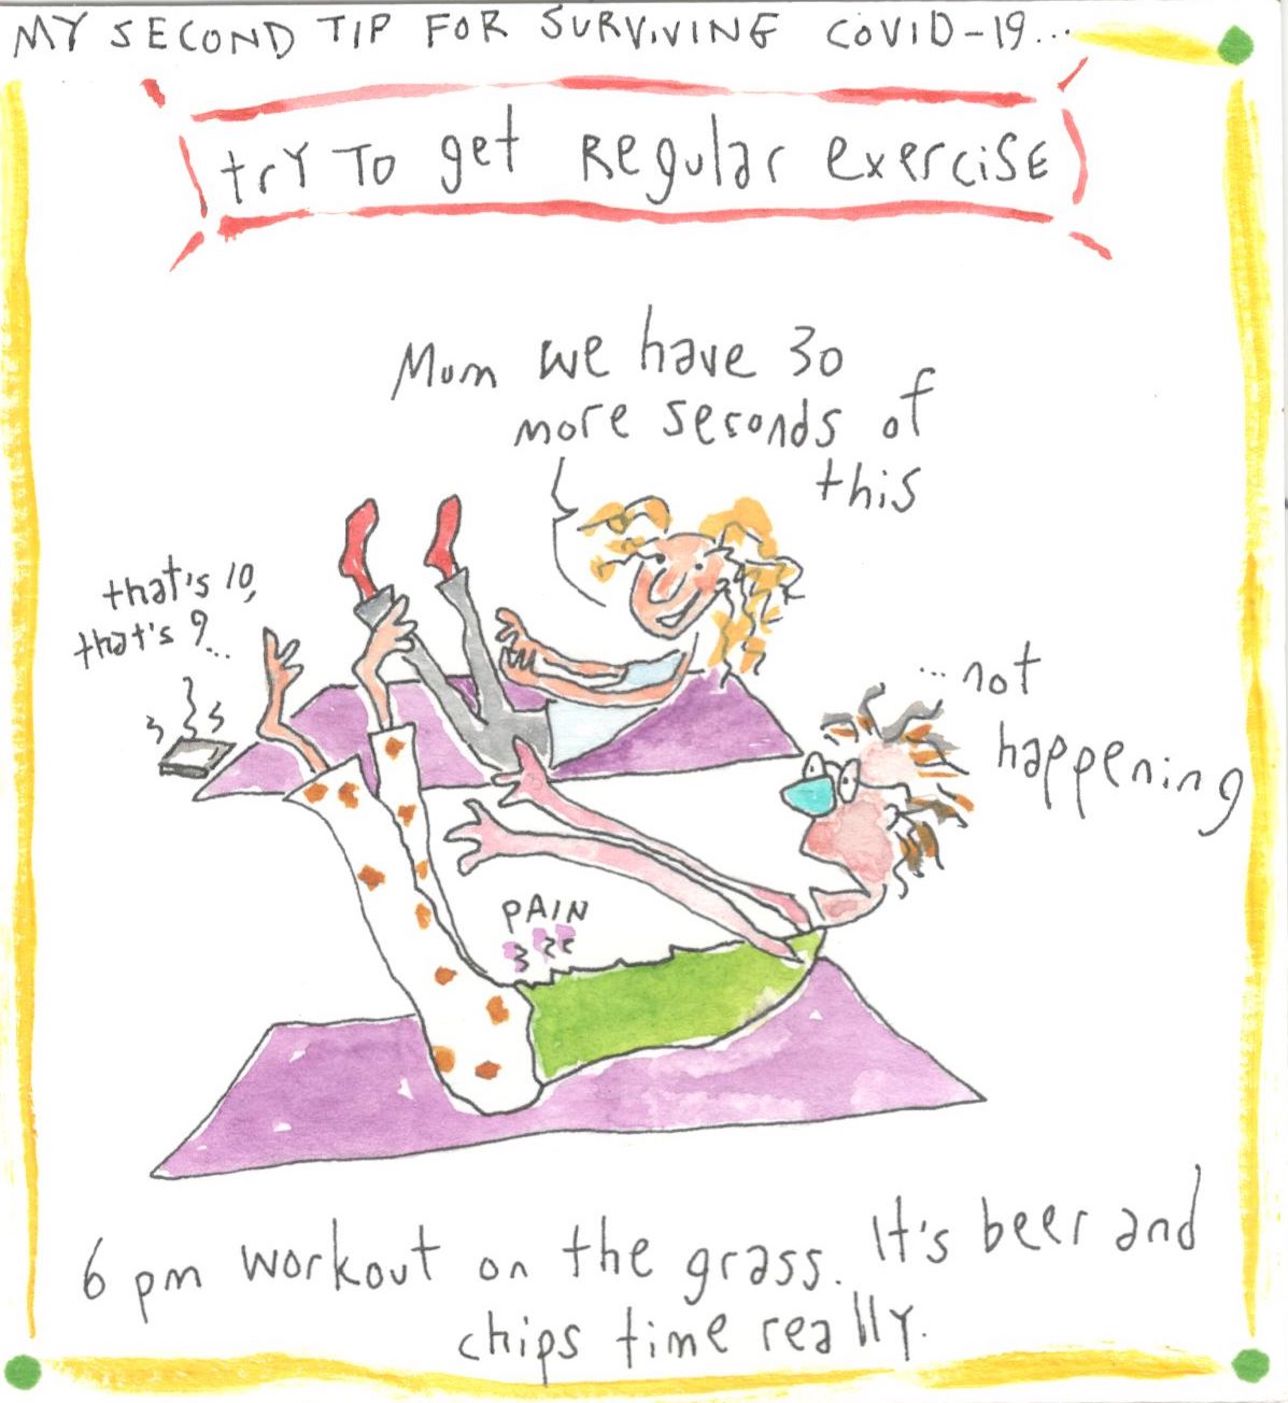 MY SECOND TIP FOR SURVIVING COVID-19...
trY TO get Regular exerciSE
Mum we have 30
more seconds of
this
that's 10,
that's 9...
...not
happening
PAIN
6 pm workout on the grass. It's beer and
chips time really.